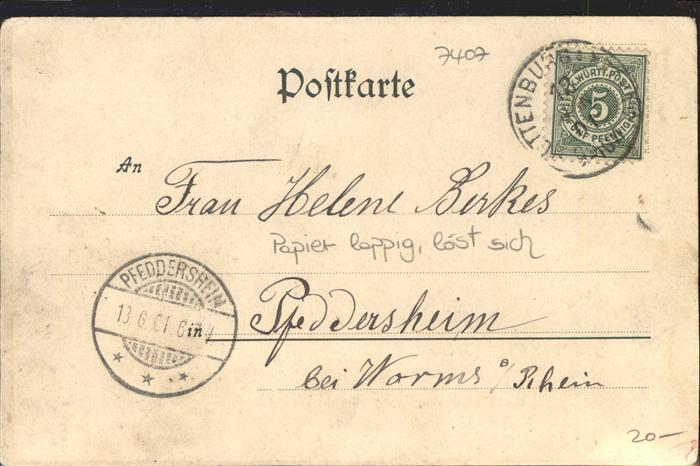 7407
Postkarte
K. WÜRTT. POST
5
FÜNF PFENNIG
An
Frau Helene Berkes
Papier lappig, löst sich
PFEDDERSHEIM
13 6 01. 6
in
Pfeddersheim
bei Worms a/Rhein
20-